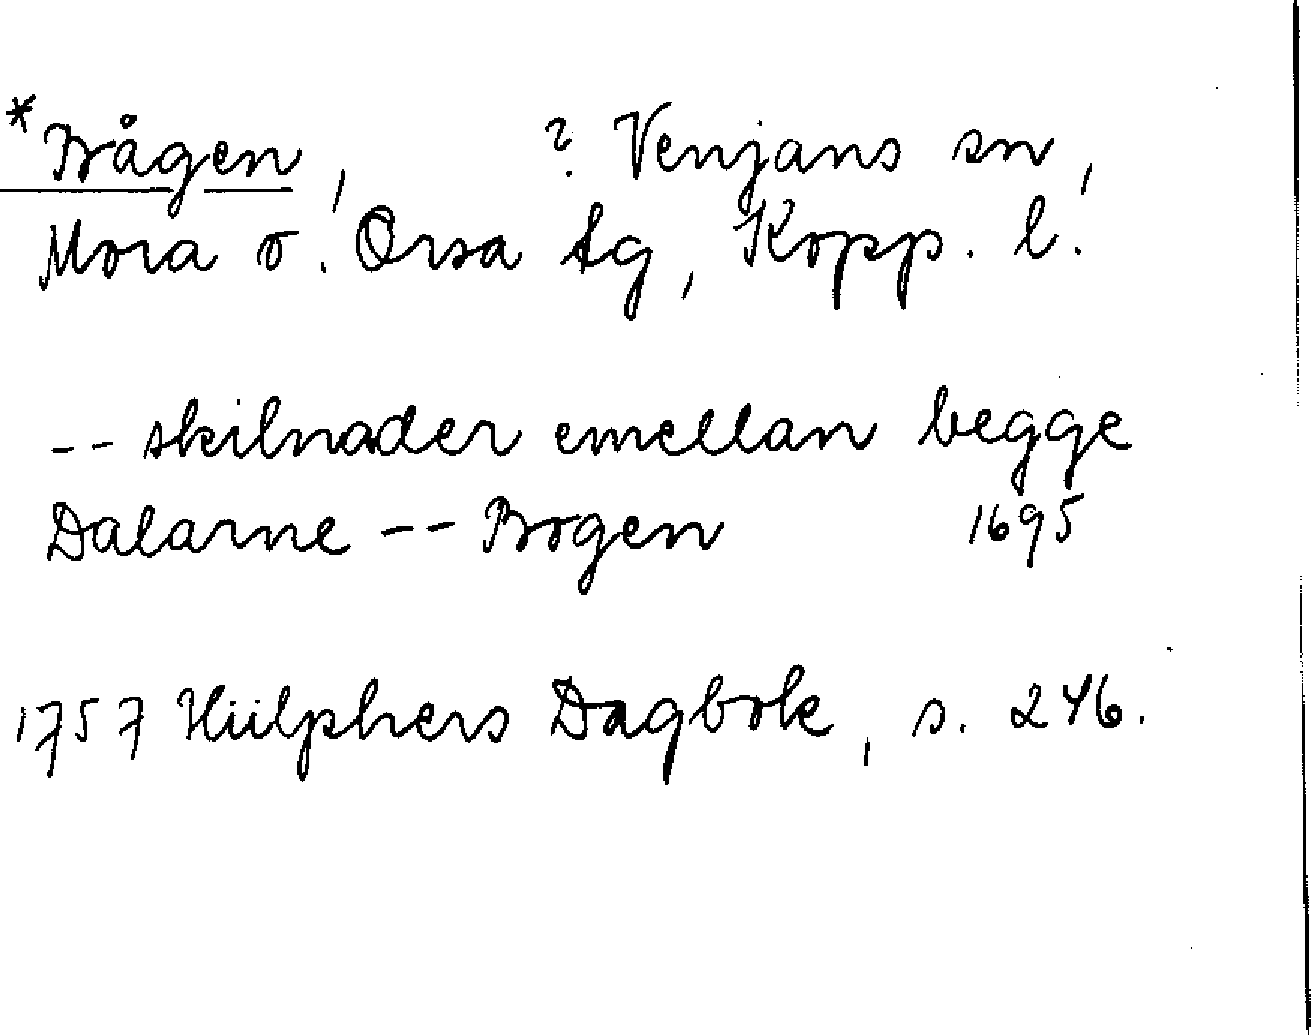 *Brågen, ? Venjans sn,
Mora o. Orsa tg, Kopp. l.
-- skilnader emellan begge
Dalarne -- Brogen 1695
1757 Hülphers Dagbok, s. 246.